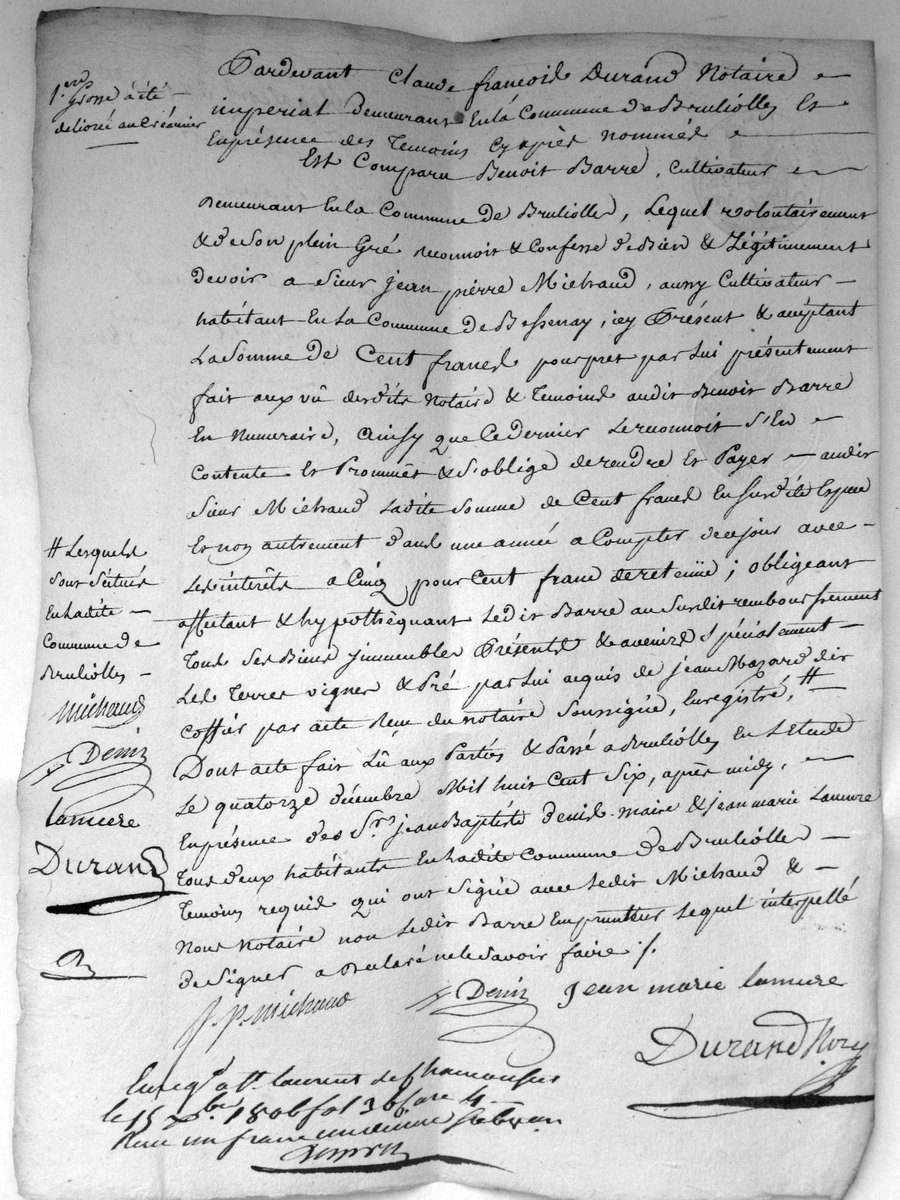 1.ere Grosse à été
delivrée au Créancier
Pardevant Claude françois Durand Notaire
imperial Demeurant En la Commune de Brulioles Et
En présence des Temoins Cy après nommés
Est Comparu Benoit Barre, Cultivateur
Demeurant En la Commune de Brullioles, Lequel volontairement
& de Son plein Gré reconnoit & Confesse de Bien & Légitimement
Devoir a Sieur jean pierre Michaud, aussy Cultivateur
habitant En La Commune de Bessenay, icy Présent & acéptant
La Somme de Cent francs pour pret par Lui présentement
fait aux vû desdits Notaire & Temoins audit Benoit Barre
En Numeraire, Ainsy que Ce Dernier Le reconnoit S'En
Contente Et Prommet & S'oblige de rendre Et Payer audit
Sieur Michaud Ladite Somme de Cent francs En Susdites Espece
Et non autrement Dans une année a Compter de ce jour avec
Les interêts a Cinq pour Cent franc de retenüe ; obligeant
affectant & hypothéquant Ledit Barre au Susdit remboursement
Tous Ses Biens jmmeubles Présents & avenirs Spécialement
Les Terres vignes & Pré par Lui acquis de jean Mazard dit
Coffár par acte Reçu du notaire Soussigné, Enregistré, #
# Lesquels
Sont Scitués
En Ladite
Commune de
Brullioles
Michaud
Deniz
Lamure
Durand
Dont acte fait Lû aux Parties & Passé a Brullioles En L'Etude
Le quatorze décembre Mil huit Cent Six, après midy,
En présence des Srs jean Baptiste Denis maire & jean marie Lamure
Tous deux habitants En Ladite Commune de Brullioles
Temoins requis qui ont Signé avec Ledit Michaud &
Nous Notaire non Ledit Barre Emprunteur Lequel interpellé
de Signer a Declaré ne le Savoir faire /.
j. p. michaud
Deniz
Jean marie Lamure
Durand Nore
Enregé a St. Laurent de Chamousset
le 15 Xbre 1806 fol 36 Case 4
Reçu un franc